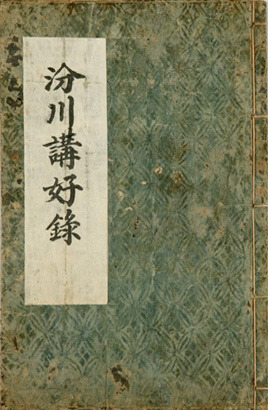 汾川講好錄